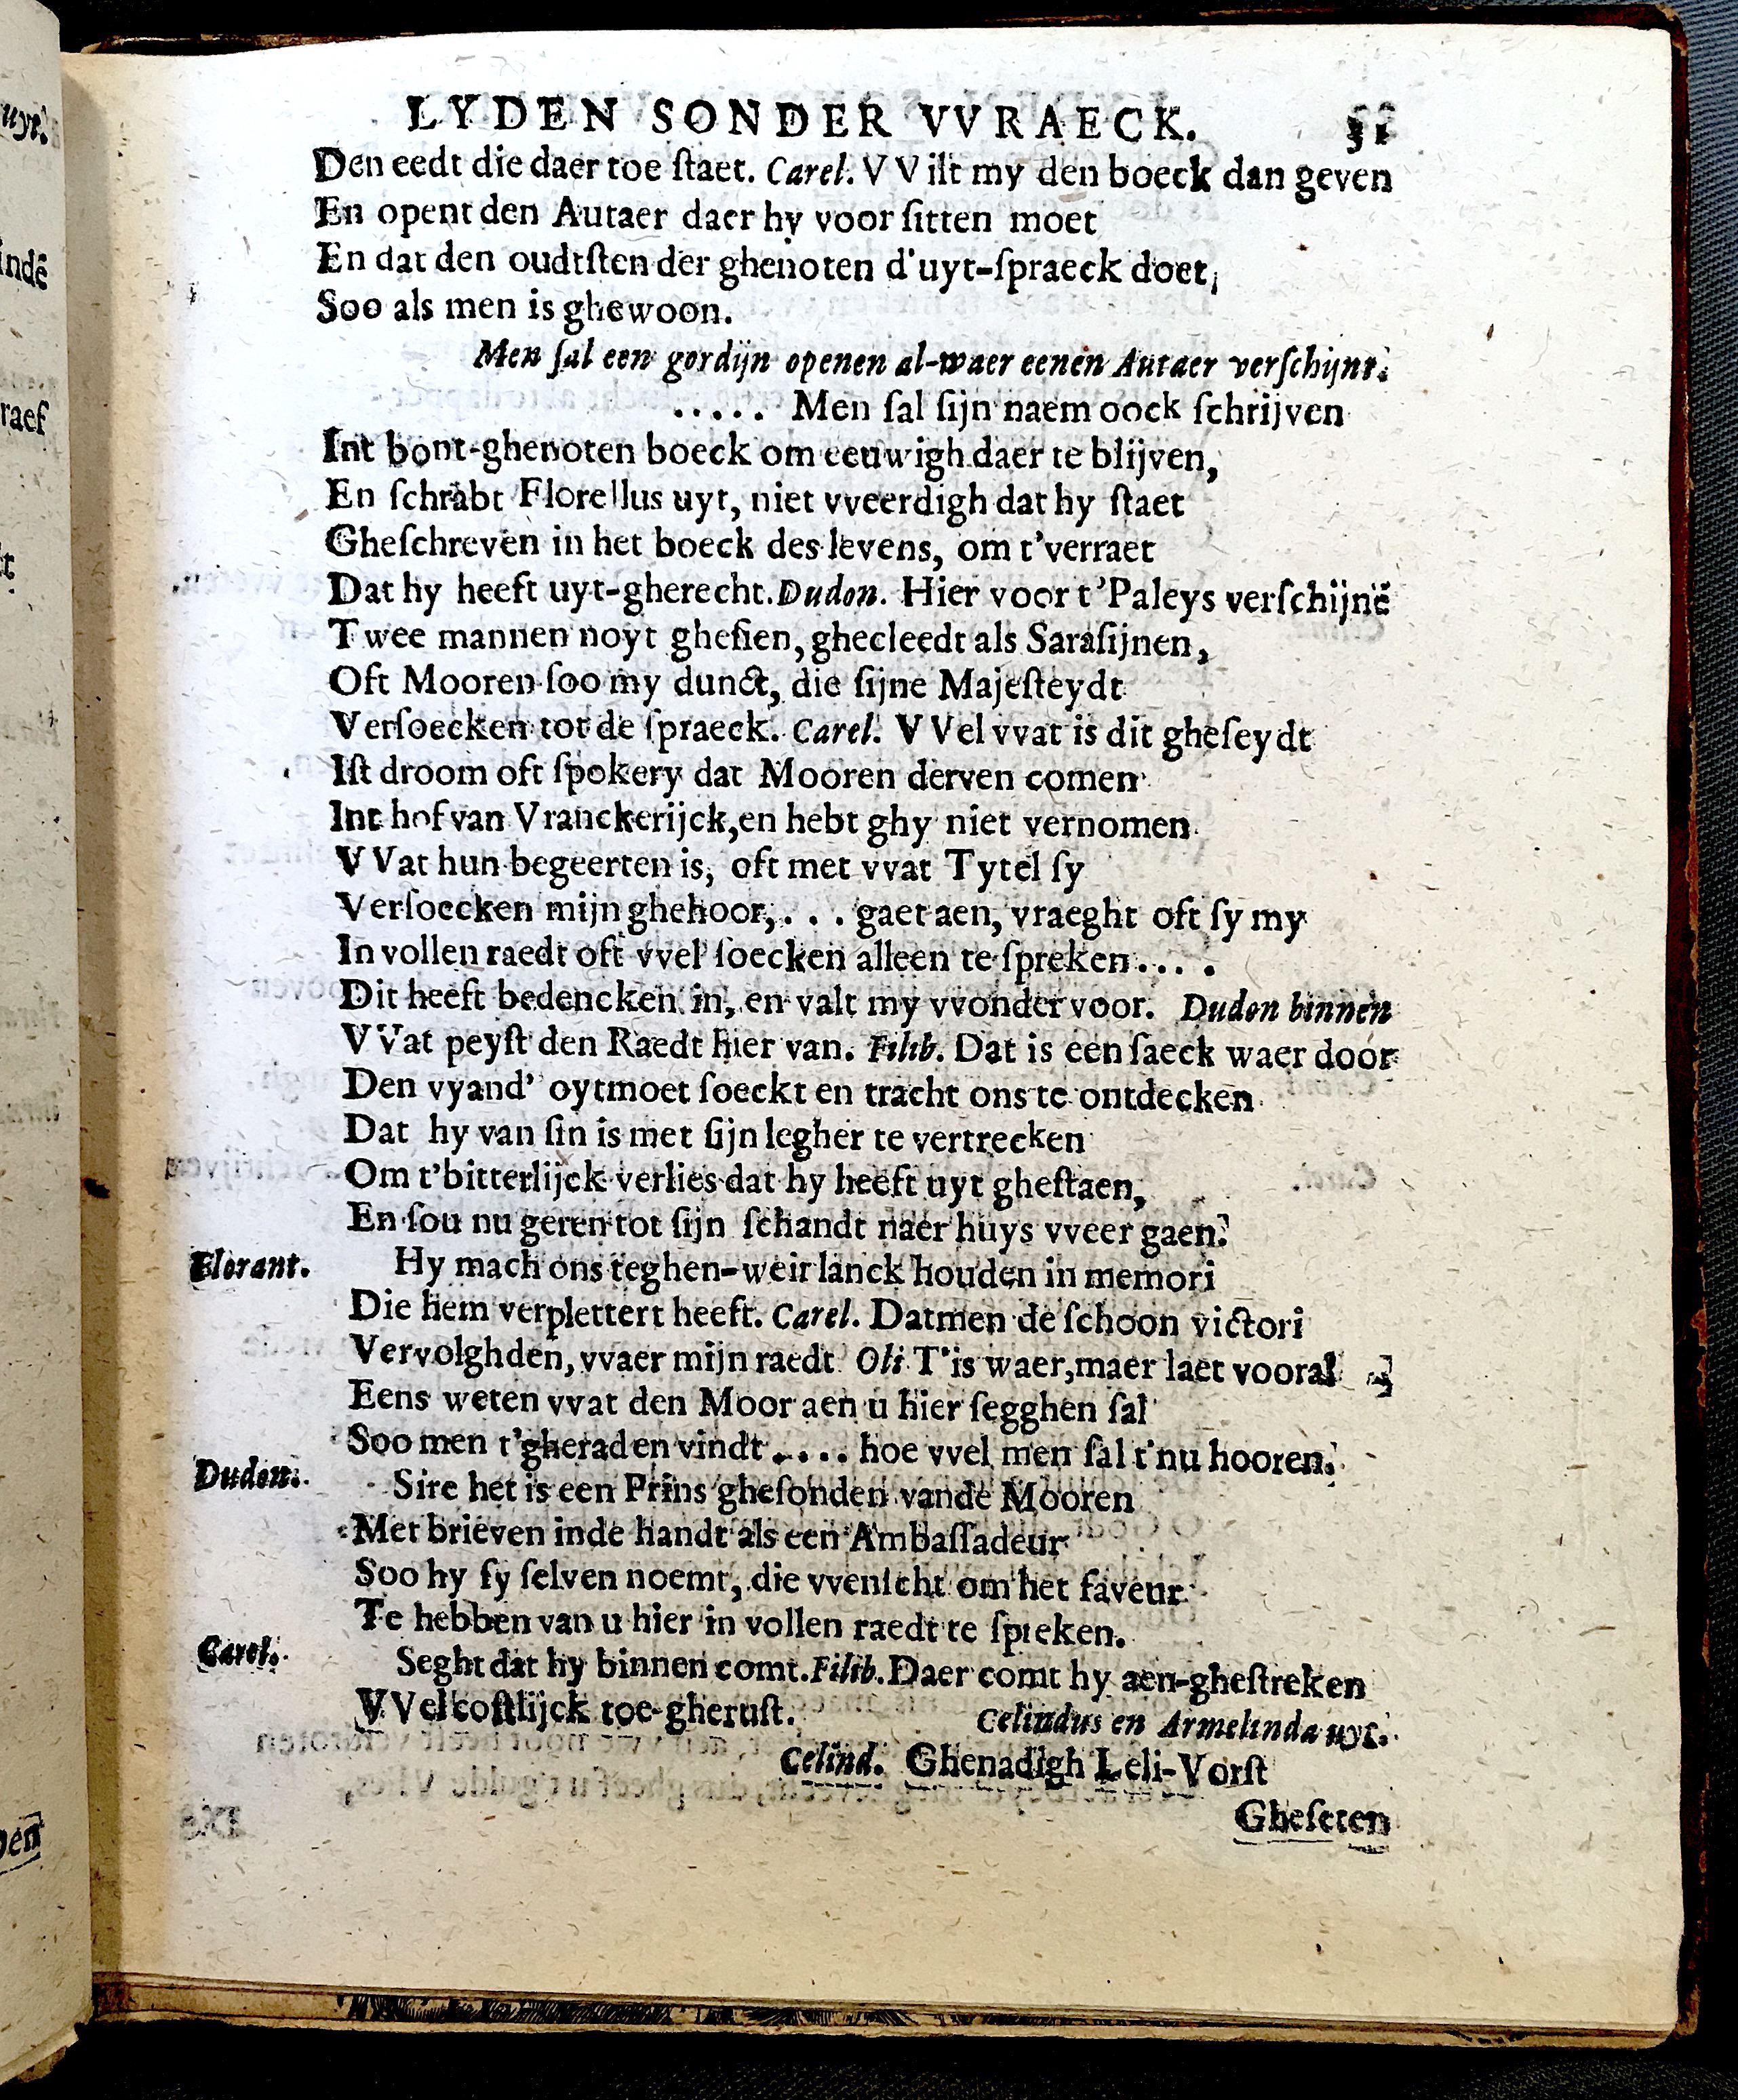 LYDEN SONDER VVRAECK.
Den eedt die daer toe ſtaet. Carel. VVilt my den boeck dan geven
En opent den Autaer daer hy voor ſitten moet
En dat den oudtſten der ghenoten d'uyt-ſpraeck doet,
Soo als men is ghewoon.
Men ſal een gordijn openen al-waer eenen Autaer verſchijnt.
..... Men ſal ſijn naem oock ſchrijven
Int bont-ghenoten boeck om eeuwigh daer te blijven,
En ſchrabt Florellus uyt, niet vveerdigh dat hy ſtaet
Gheſchreven in het boeck des levens, om t'verraet
Dat hy heeft uyt-gherecht. Dudon. Hier voor t'Paleys verſchijnē
Twee mannen noyt gheſien, ghecleedt als Saraſijnen,
Oft Mooren ſoo my dunct, die ſijne Majeſteydt
Verſoecken tot de ſpraeck. Carel. VVel vvat is dit gheſeydt
Iſt droom oft ſpokery dat Mooren derven comen
Int hof van Vranckerijck, en hebt ghy niet vernomen
VVat hun begeerten is, oft met vvat Tytel ſy
Verſoecken mijn ghehoor, . . . gaet aen, vraeght oft ſy my
In vollen raedt oft vvel ſoecken alleen te ſpreken....
Dit heeft bedencken in, en valt my vvonder voor. Dudon binnen
VVat peyſt den Raedt hier van. Filib. Dat is een ſaeck waer door
Den vyand' oytmoet ſoeckt en tracht ons te ontdecken
Dat hy van ſin is met ſijn legher te vertrecken
Om t'bitterlijck verlies dat hy heeft uyt gheſtaen,
En ſou nu geren tot ſijn ſchandt naer huys vveer gaen.
Florant. Hy mach ons teghen-weir lanck houden in memori
Die hem verplettert heeft. Carel. Datmen de ſchoon victori
Vervolghden, vvaer mijn raedt. Oli. T'is waer, maer laet vooral
Eens weten vvat den Moor aen u hier ſegghen ſal
Soo men t'gheraden vindt .... hoe vvel men ſal t'nu hooren.
Dudon. Sire het is een Prins gheſonden vande Mooren
Met brieven inde handt als een Ambaſſadeur
Soo hy ſy ſelven noemt, die vvenſcht om het faveur
Te hebben van u hier in vollen raedt te ſpreken.
Carel. Seght dat hy binnen comt. Filib. Daer comt hy aen-gheſtreken
VVel coſtlijck toe-gheruſt. Celindus en Armelinda uyt.
Celind. Ghenadigh Leli-Vorſt
Gheſeten